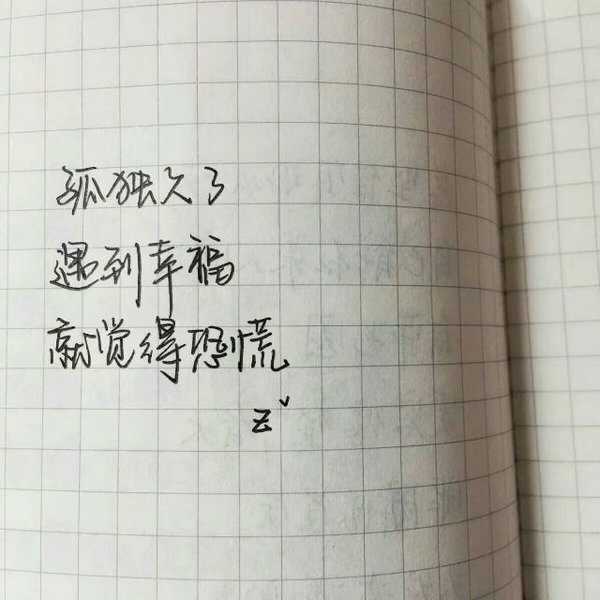 孤独久了
遇到幸福
就觉得恐慌
z